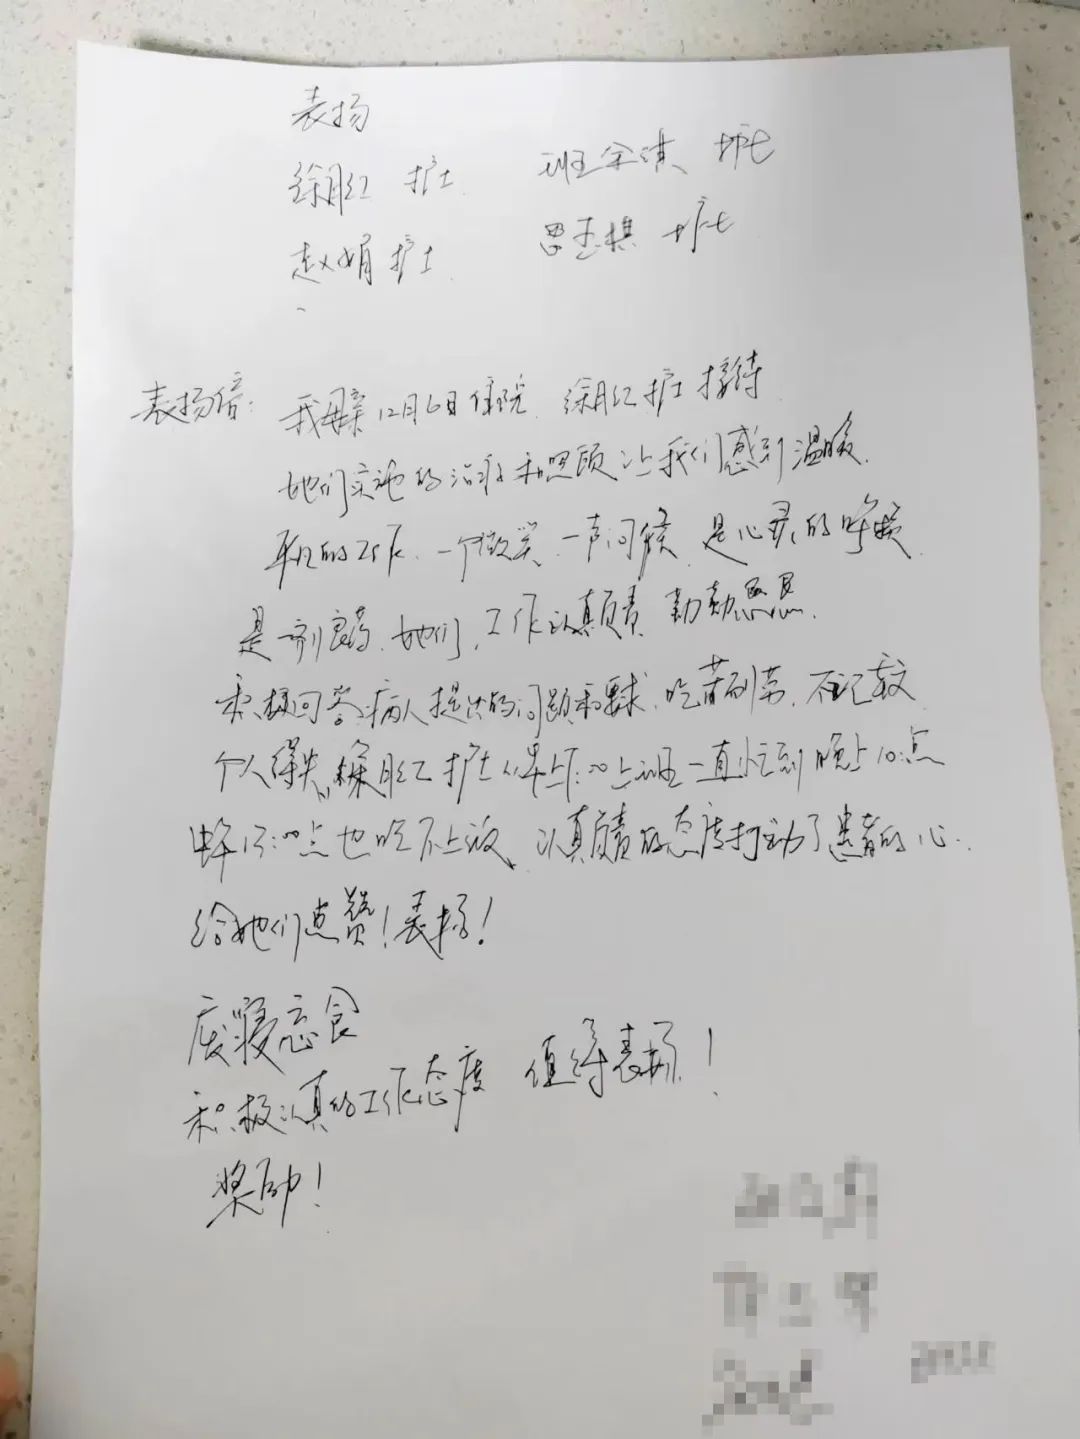 表扬
徐月红 护士 班全淇 护士
赵娟 护士 思孟棋 护士
表扬信: 我母亲12月6日住院 徐月红护士接待
她们实施的治疗和照顾让我们感到温暖.
平凡的工作、一个微笑、一声问候 是心灵的呼唤
是一剂良药. 她们, 工作认真负责 勤勤恳恳.
积极回答病人提出的问题和要求. 吃苦耐劳. 不计较
个人得失. 徐月红护士从早上7:00上班一直忙到晚上10:点
中午13:00点也吃不上饭、认真负责的态度打动了患者的心.
给她们点赞!表扬!
废寝忘食
积极认真的工作态度 值得表扬!
奖励!